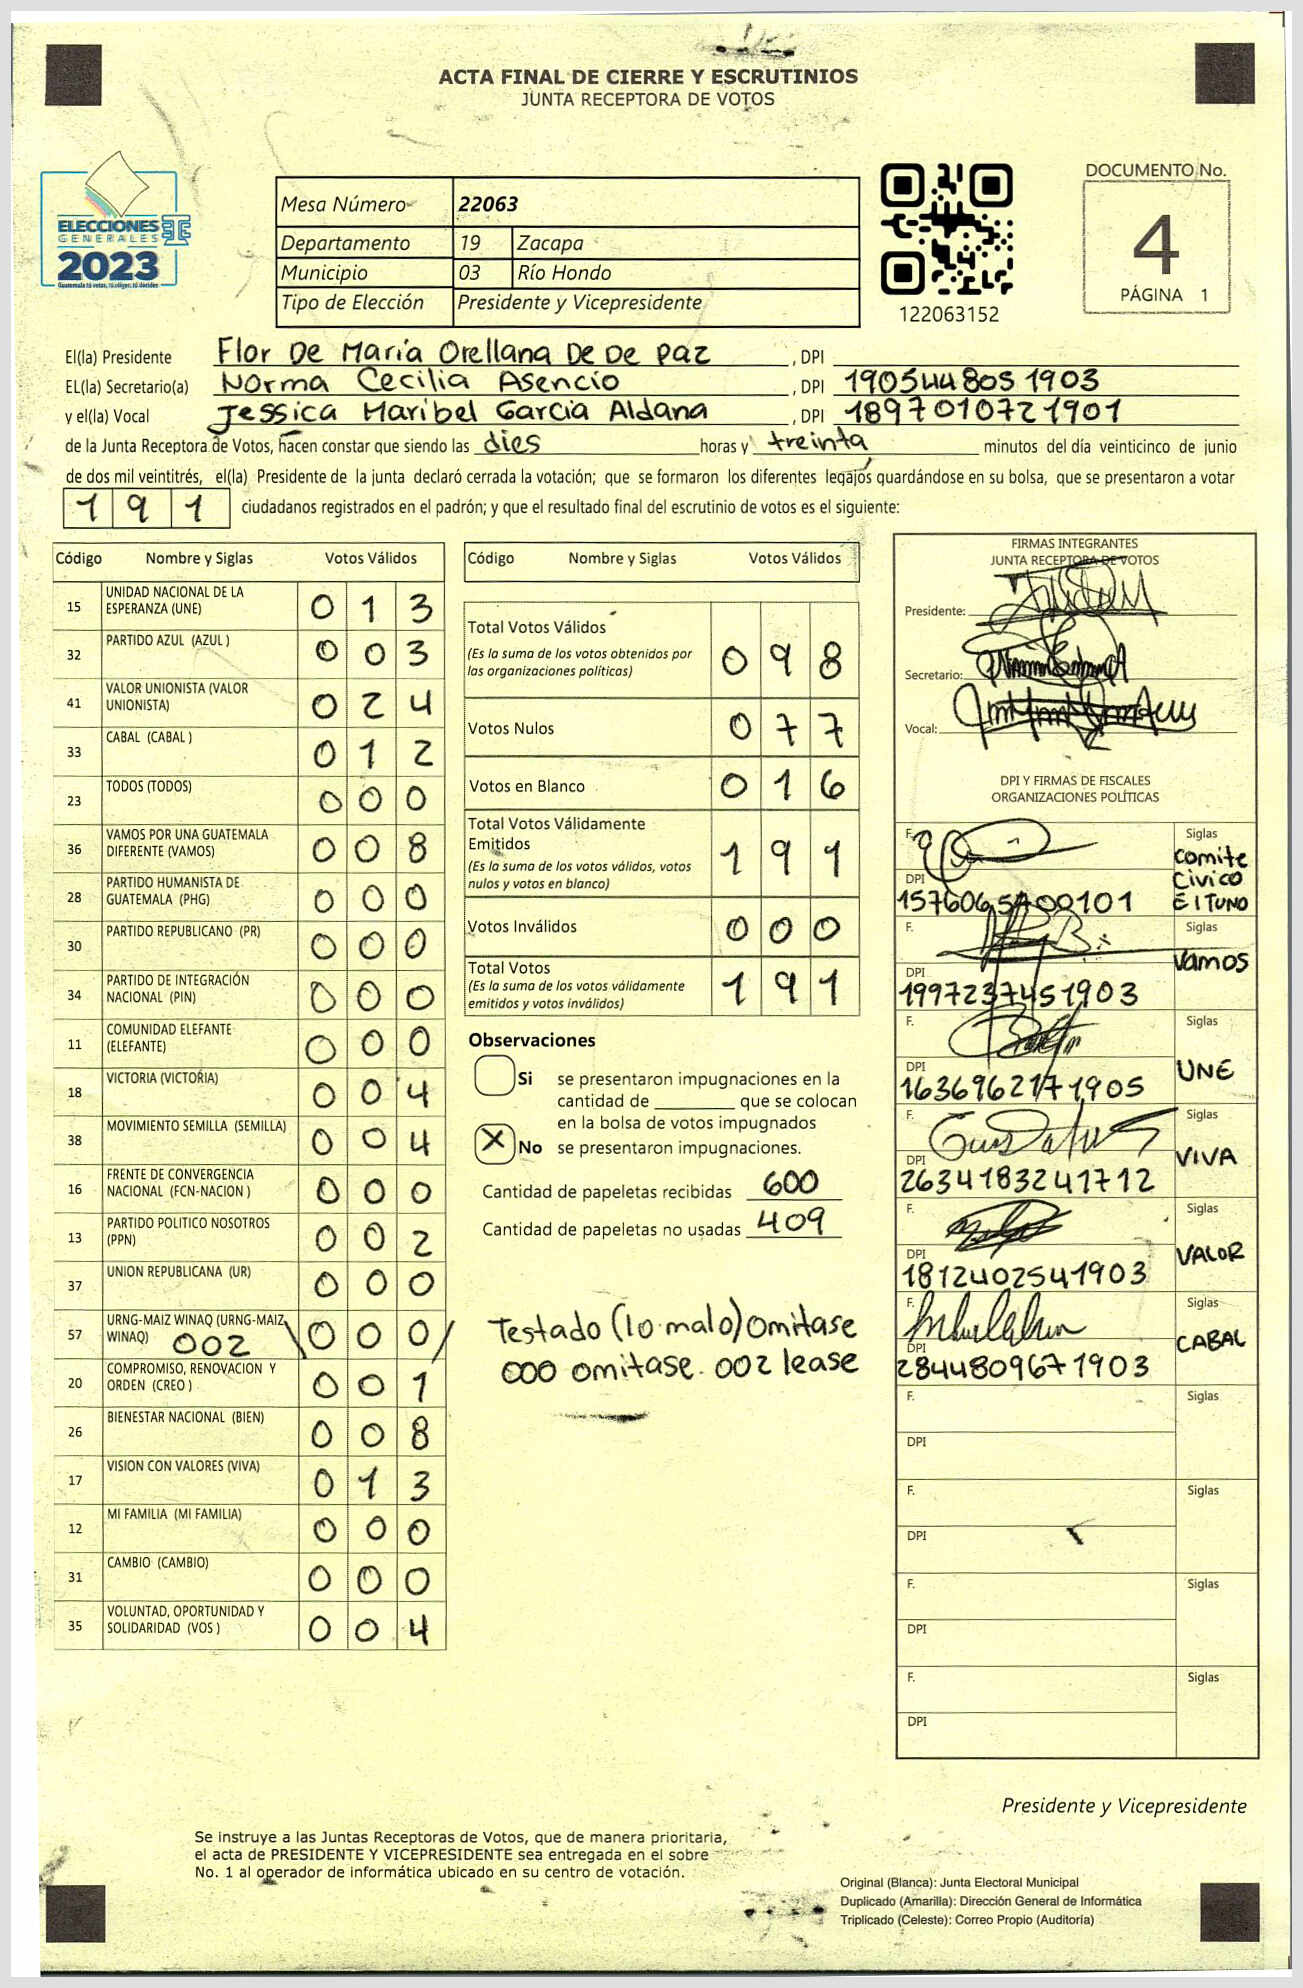 ACTA FINAL DE CIERRE Y ESCRUTINIOS
JUNTA RECEPTORA DE VOTOS
ELECCIONES
GENERALES
2023
Guatemala tú votas, tú eliges, tú decides
Mesa Número 22063
Departamento 19 Zacapa
Municipio 03 Río Hondo
Tipo de Elección Presidente y Vicepresidente
122063152
DOCUMENTO No.
4
PÁGINA 1
El(la) Presidente Flor De María Orellana De De Paz , DPI
EL(la) Secretario(a) Norma Cecilia Asencio , DPI 1905448051903
y el(la) Vocal Jessica Maribel Garcia Aldana , DPI 1897010721901
de la Junta Receptora de Votos, hacen constar que siendo las dies horas y treinta minutos del día veinticinco de junio
de dos mil veintitrés, el(la) Presidente de la junta declaró cerrada la votación; que se formaron los diferentes legajos guardándose en su bolsa, que se presentaron a votar
191 ciudadanos registrados en el padrón; y que el resultado final del escrutinio de votos es el siguiente:
Código Nombre y Siglas Votos Válidos
15 UNIDAD NACIONAL DE LA
ESPERANZA (UNE) 013
32 PARTIDO AZUL (AZUL ) 003
41 VALOR UNIONISTA (VALOR
UNIONISTA) 024
33 CABAL (CABAL ) 012
23 TODOS (TODOS) 000
36 VAMOS POR UNA GUATEMALA
DIFERENTE (VAMOS) 008
28 PARTIDO HUMANISTA DE
GUATEMALA (PHG) 000
30 PARTIDO REPUBLICANO (PR) 000
34 PARTIDO DE INTEGRACIÓN
NACIONAL (PIN) 000
11 COMUNIDAD ELEFANTE
(ELEFANTE) 000
18 VICTORIA (VICTORIA) 004
38 MOVIMIENTO SEMILLA (SEMILLA) 004
16 FRENTE DE CONVERGENCIA
NACIONAL (FCN-NACION ) 000
13 PARTIDO POLITICO NOSOTROS
(PPN) 002
37 UNION REPUBLICANA (UR) 000
57 URNG-MAIZ WINAQ (URNG-MAIZ
WINAQ) 002 \000/
20 COMPROMISO, RENOVACION Y
ORDEN (CREO ) 001
26 BIENESTAR NACIONAL (BIEN) 008
17 VISION CON VALORES (VIVA) 013
12 MI FAMILIA (MI FAMILIA) 000
31 CAMBIO (CAMBIO) 000
35 VOLUNTAD, OPORTUNIDAD Y
SOLIDARIDAD (VOS ) 004
Código Nombre y Siglas Votos Válidos
Total Votos Válidos
(Es la suma de los votos obtenidos por
las organizaciones políticas) 098
Votos Nulos 077
Votos en Blanco 016
Total Votos Válidamente
Emitidos
(Es la suma de los votos válidos, votos
nulos y votos en blanco) 191
Votos Inválidos 000
Total Votos
(Es la suma de los votos válidamente
emitidos y votos inválidos) 191
Observaciones
Si se presentaron impugnaciones en la
cantidad de ________ que se colocan
en la bolsa de votos impugnados
X No se presentaron impugnaciones.
Cantidad de papeletas recibidas 600
Cantidad de papeletas no usadas 409
Testado (lo malo) Omitase
000 omitase. 002 lease
FIRMAS INTEGRANTES
JUNTA RECEPTORA DE VOTOS
Presidente:
Secretario:
Vocal:
DPI Y FIRMAS DE FISCALES
ORGANIZACIONES POLÍTICAS
F. Siglas
Comite
Civico
DPI
F. Siglas
Vamos
DPI
1997237451903
F. Siglas
UNE
DPI
1636962171905
F. Siglas
VIVA
DPI
2634183241712
F. Siglas
VALOR
DPI
1812402541903
F. Siglas
CABAL
DPI
2844809671903
F. Siglas
DPI
F. Siglas
DPI
F. Siglas
DPI
F. Siglas
DPI
Presidente y Vicepresidente
Se instruye a las Juntas Receptoras de Votos, que de manera prioritaria,
el acta de PRESIDENTE Y VICEPRESIDENTE sea entregada en el sobre
No. 1 al operador de informática ubicado en su centro de votación.
Original (Blanca): Junta Electoral Municipal
Duplicado (Amarilla): Dirección General de Informática
Triplicado (Celeste): Correo Propio (Auditoría)